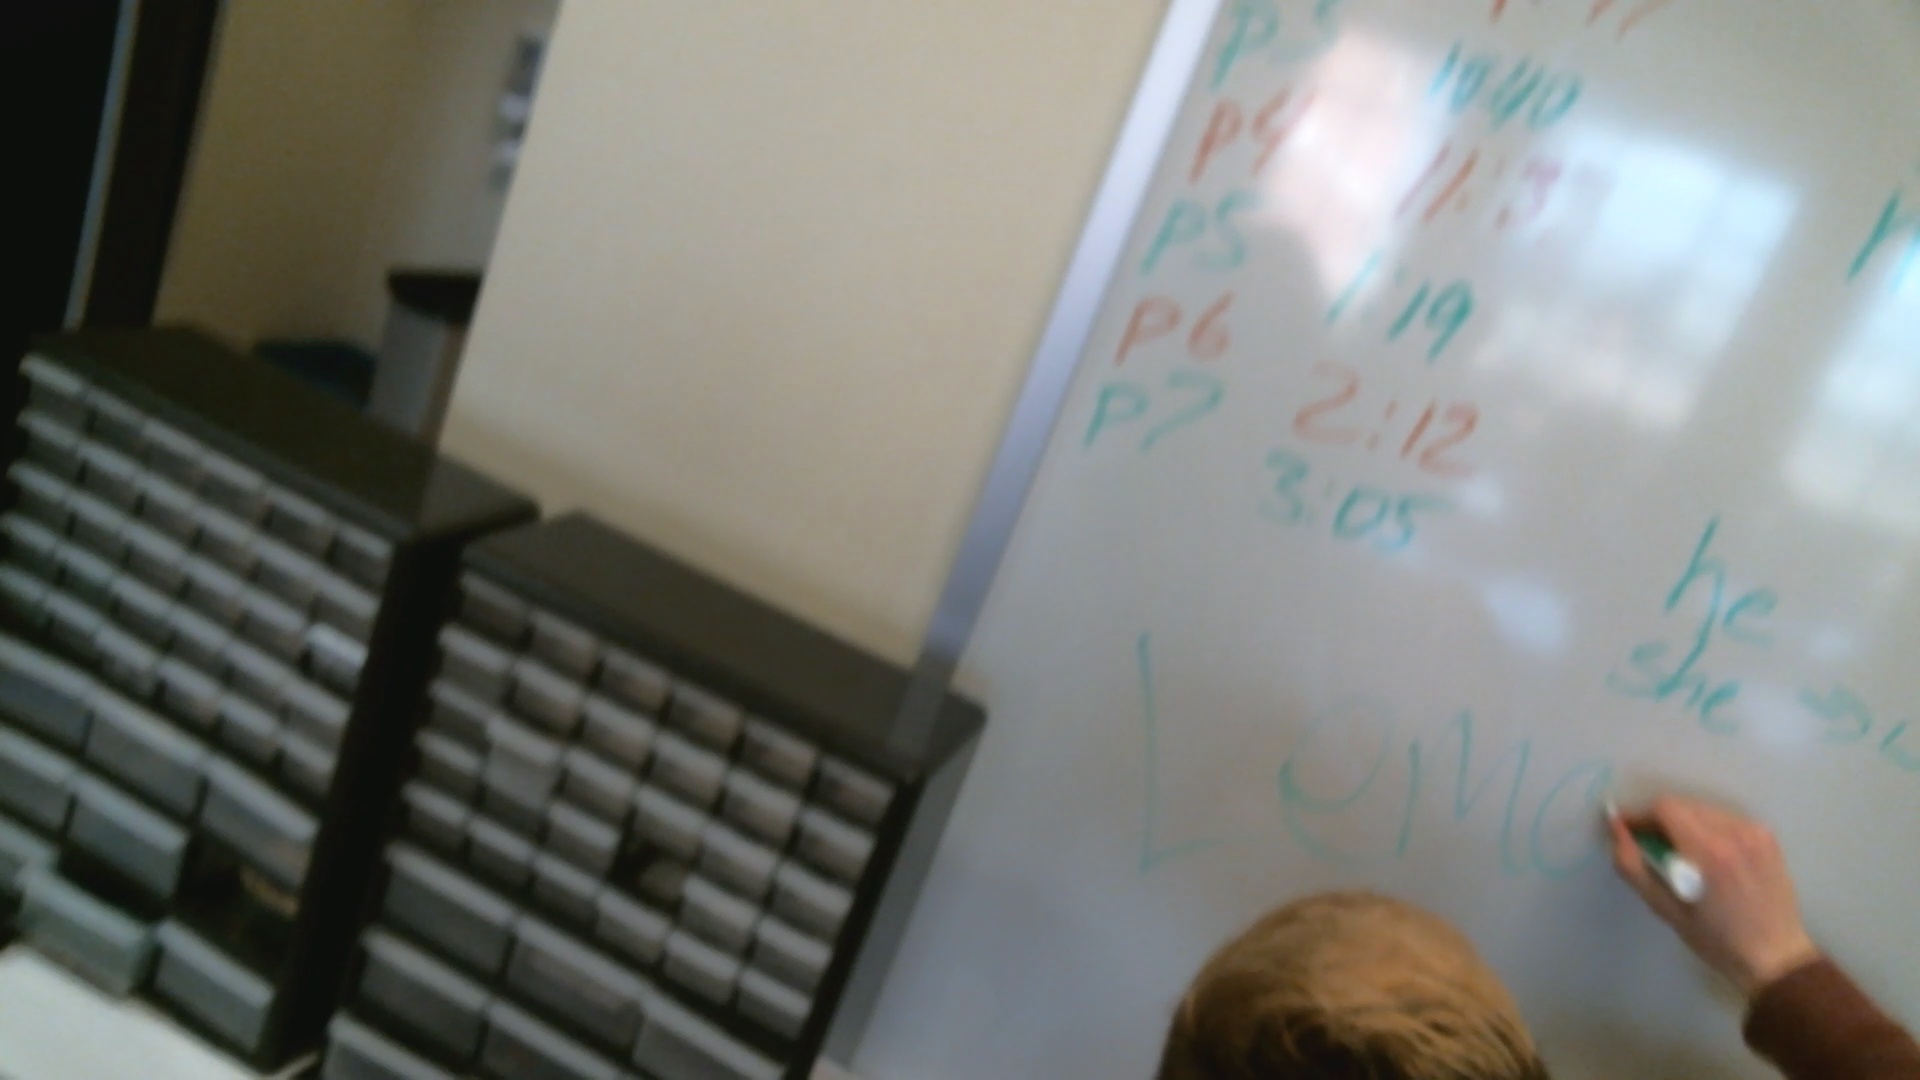 P3 10:40
P4 11:3
P5 1:19
P6 2:12
P7 3:05
he
she
Lemo